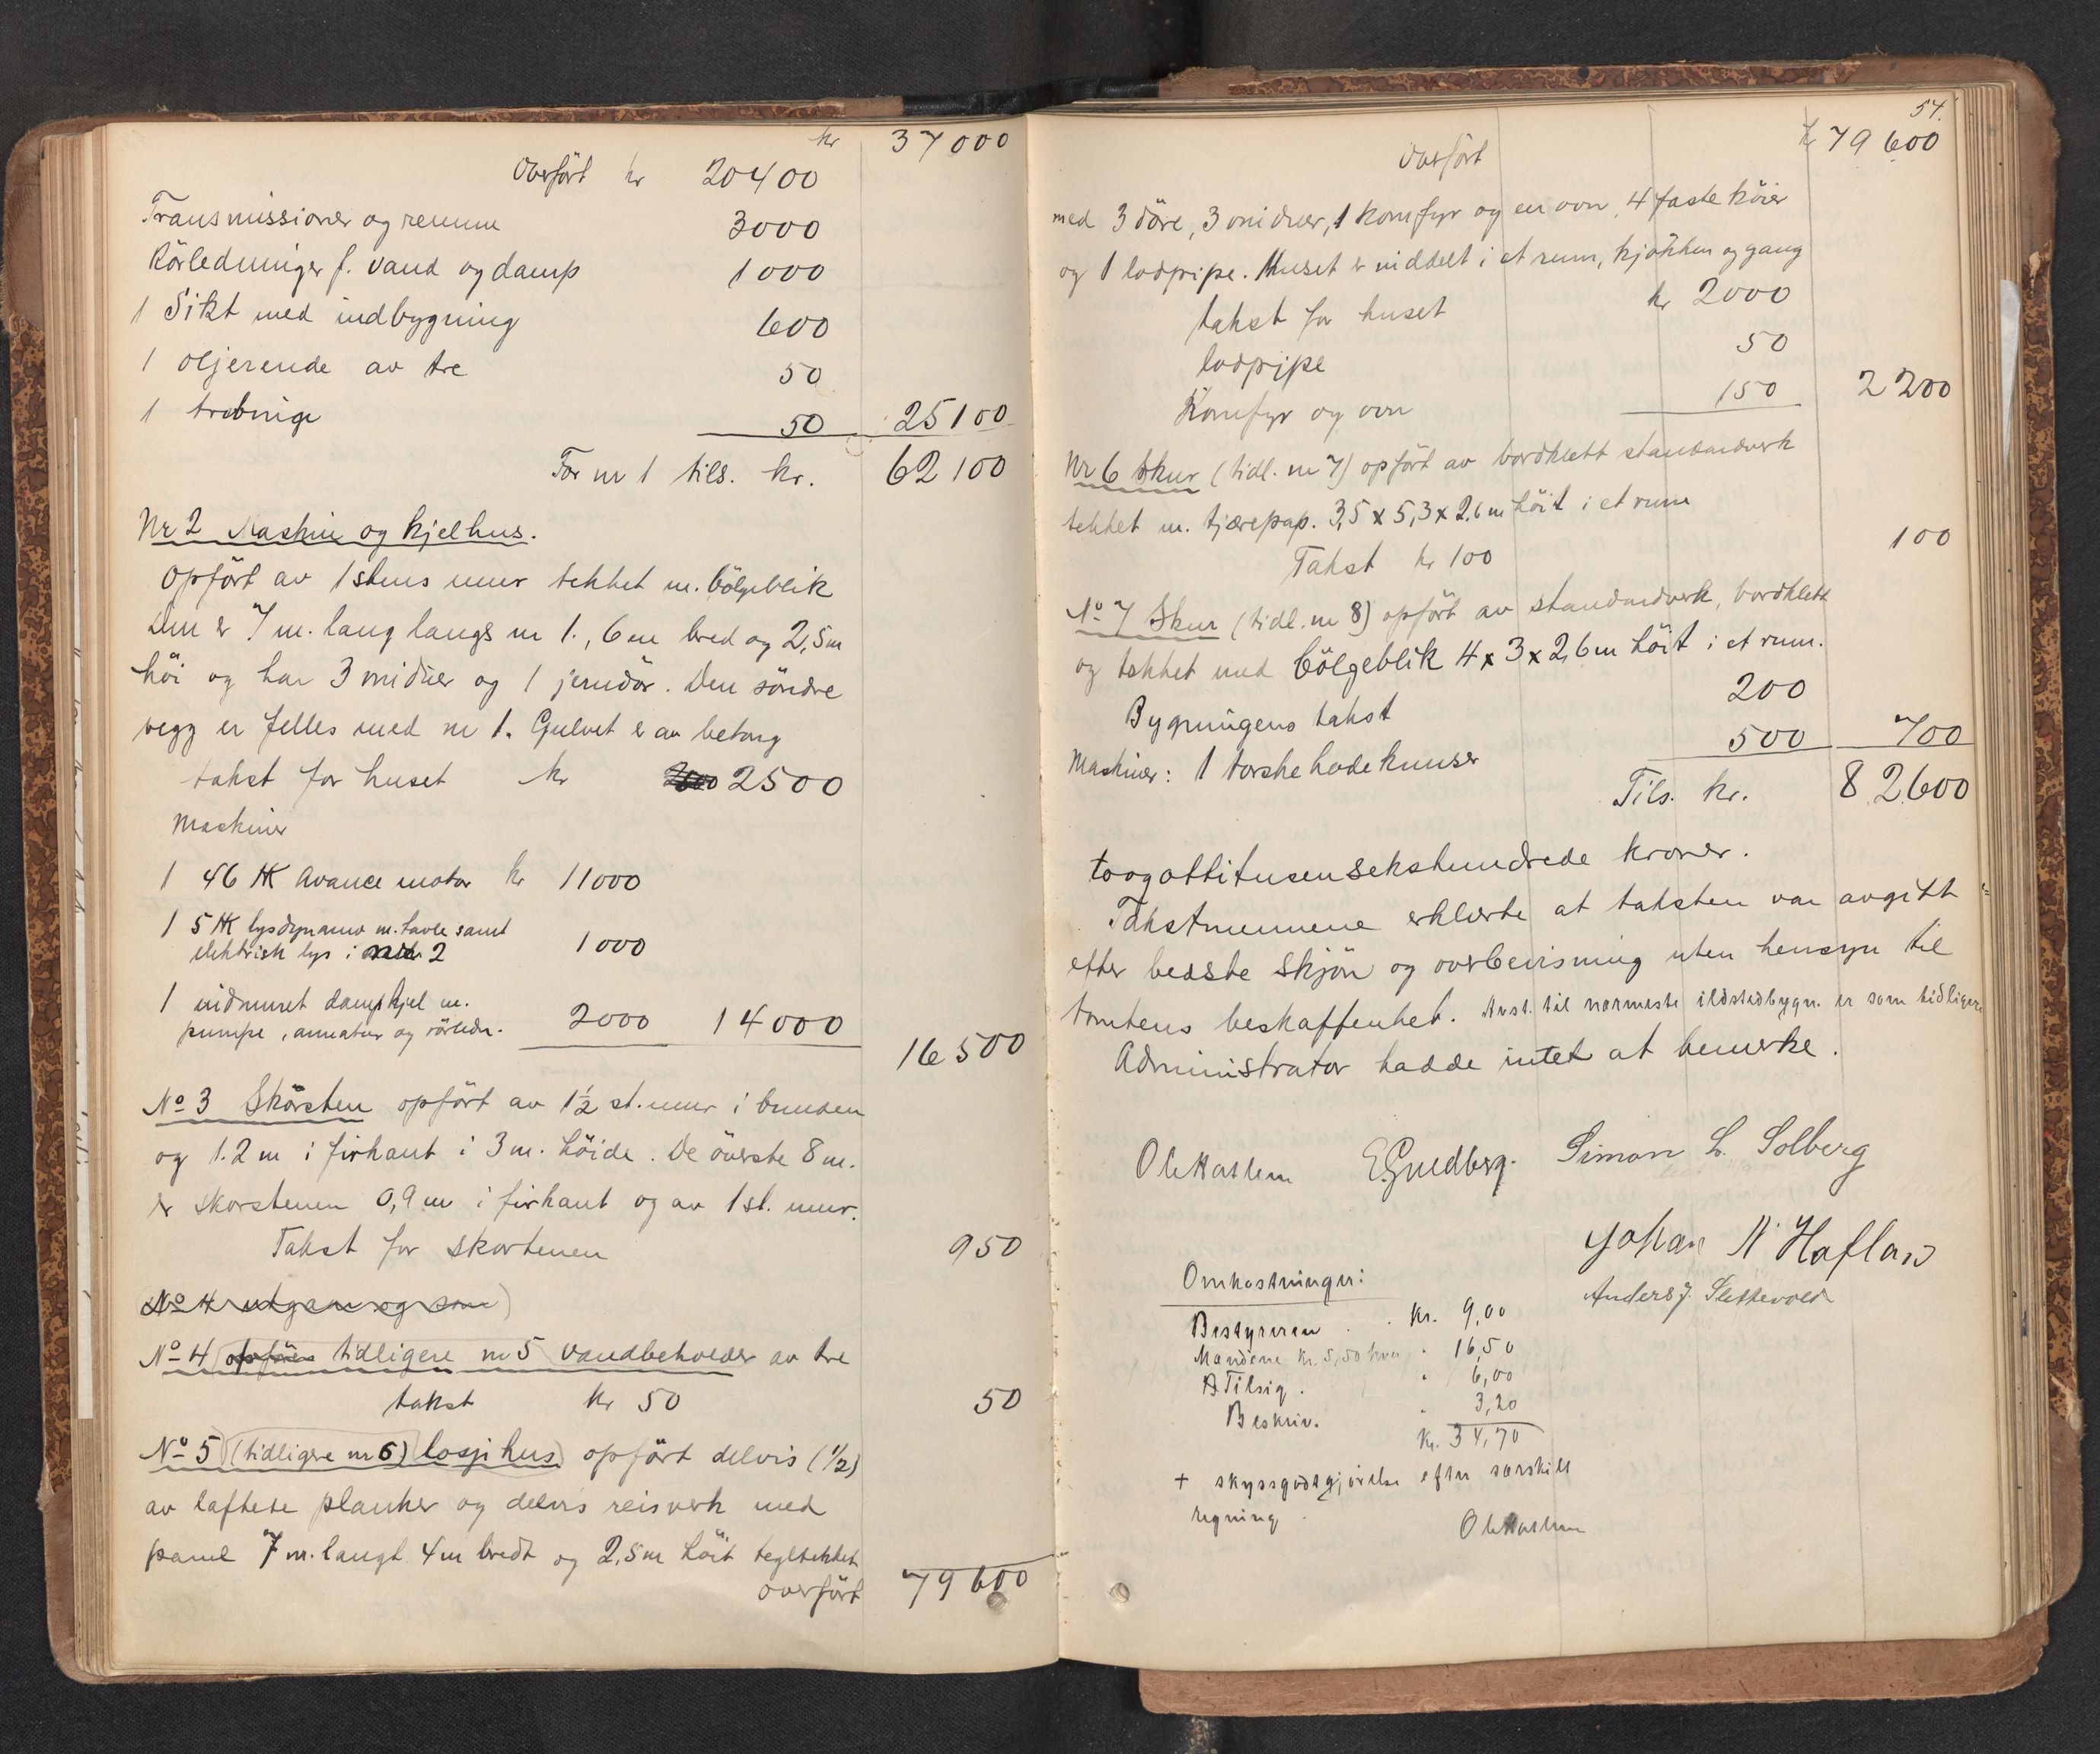 kr 37000
Overført kr 20400
Transmissioner og remme 3000
Rörledninger f. vand og damp 1000
1 Sikt med indbygning 600
1 oljerende av tre 50
1 trebinge 50 25100
For nr 1 tils. kr. 62100
Nr 2 Maskin og kjelhus.
Opført av 1 stens mur tekket m. bölgeblik
Den er 7 m. lang langs nr 1., 6 m bred og 2,5 m
höi og har 3 vinduer og 1 jerndör. Den söndre
vegg er felles med nr 1. Gulvet er av betong
takst for huset kr 2000 2500
Maskiner
1 46 HK Avance motor kr 11000
1 5 HK lysdynamo m. tavle samt
elektrisk lys i 2 1000
1 indmuret dampkjel m.
pumpe, armatur og rörledn. 2000 14000
16500
No 3 Skorsten opført av 1½ st. mur i bunden
og 1.2 m i firkant i 3 m. höide. De överste 8 m.
er skorstenen 0,9 m i firkant og av 1 st. mur.
Takst for skorstenen 950
No 4 utgaar og som
No 4 opføres tidligere nr 5 Vandbeholder av tre
takst kr 50 50
No 5 (tidligere nr 6) losjihus opført delvis (1/2)
av laftede planker og delvis reisverk med
panel 7 m. langt 4 m bredt og 2,5 m höit tegltekket
overført 79600
54.
Overført kr 79600
med 3 döre, 3 vinduer, 1 komfyr og en ovn, 4 faste köier
og 1 lodpipe. Huset er inddelt i et rum, kjökken og gang
takst for huset kr 2000
lodpipe 50
Komfyr og ovn 150 2200
Nr 6 Skur (tidl. nr 7) opført av bordklett standardverk
tekket m. tjærepap. 3,5 x 5,3 x 2,6 m höit i et rum
Takst kr 100 100
No 7 Skur (tidl. nr 8) opført av standardverk, bordklett
og tekket med bölgeblik 4 x 3 x 2,6 m höit i et rum.
Bygningens takst 200
Maskiner: 1 torskehodeknuser 500 700
Tils. kr. 82600
toogottitusensekshundrede kroner.
Takstmennene erklærte at taksten var avgitt
efter bedste skjön og overbevisning uten hensyn til
tomtens beskaffenhet. Avst. til nærmeste ildstedbygn. er som tidligere
Administrator hadde intet at bemerke.
E. Guldberg. Simon L. Solberg
Johan N Hafland
Anders J. Slettevold
Omkostninger:
Bestyreren kr. 9,00
Mændene kr. 5,50 hver " 16,50
Tilsig. " 6,00
Beskriv. " 3,20
Kr. 34,70
+ skyssgodtgjörelse efter særskilt
regning